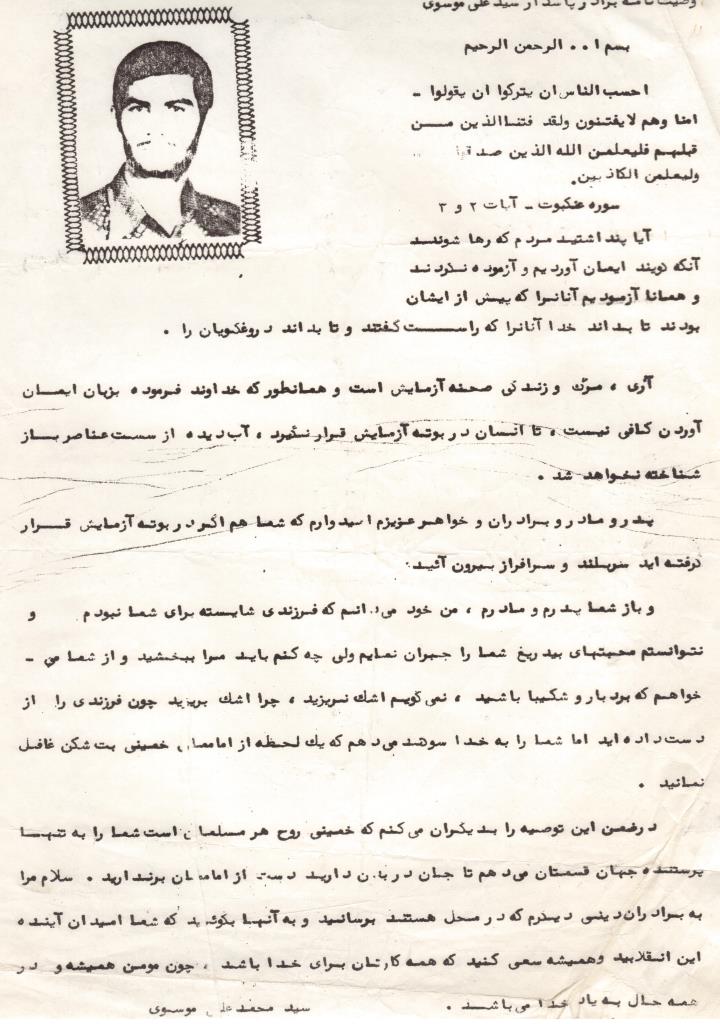 وصیت نامه برادر پاسدار سید علی موسوی
بسم ا.. الرحمن الرحیم
احسب الناس ان یترکوا ان یقولوا -
امنا وهم لایفتنون ولقد فتنا الذین مسن
قبلهم فلیعلمن الله الذین صدقوا
ولیعلمن الکاذبین.
سوره عنکبوت - آیات ۲ و ۳
آیا پنداشتید مردم که رها شوند
آنکه گویند ایمان آوردیم و آزموده نگردند
و همانا آزمودیم آنانرا که پیش از ایشان
بودند تا بداند خدا آنانرا که راست گفتند و تا بداند دروغگویان را .
آری ، مرگ و زندگی صحنه آزمایش است و همانطور که خداوند فرموده بزبان ایمان
آوردن کافی نیست ، تا انسان در بوته آزمایش قرار نگیرد ، آب دیده از سست عناصر باز
شناخته نخواهد شد .
پدر و مادر و برادران و خواهر عزیزم امیدوارم که شما هم اگر در بوته آزمایش قرار
گرفته اید سربلند و سرافراز بیرون آئید.
و باز شما پدرم و مادرم ، من خود می دانم که فرزندی شایسته برای شما نبودم و
نتوانستم محبتهای بیدریغ شما را جبران نمایم ولی چه کنم باید مرا ببخشید و از شما می -
خواهم که بردبار و شکیبا باشید ، نمی گویم اشك نریزید ، چرا اشك بریزید چون فرزندی را از
دست داده اید اما شما را به خدا سوگند می دهم که یك لحظه از امامتان خمینی بت شکن غافل
نمانید .
درضمن این توصیه را بدیگران می کنم که خمینی روح هر مسلمان است شما را به تنها
پرستنده جهان قسمتان می دهم تا جان در بدن دارید دست از امامتان برندارید . سلام مرا
به برادران دینی دیگرم که در محل هستند برسانید و به آنها بگوئید که شما امیدان آینده
این انقلابید وهمیشه سعی کنید که همه کارتان برای خدا باشد ، چون مومن همیشه و در
همه حال به یاد خدا می باشد .
سید محمد علی موسوی